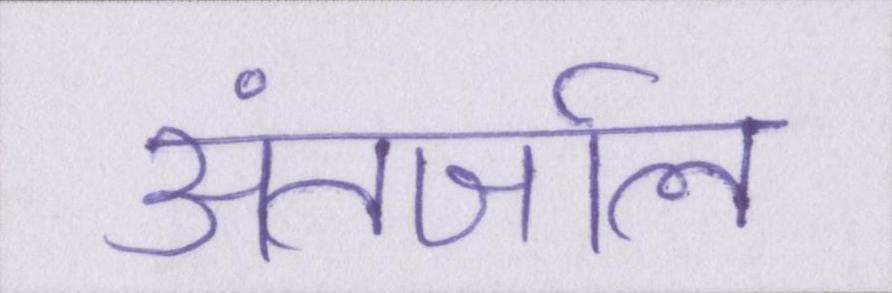 अंतर्जाल